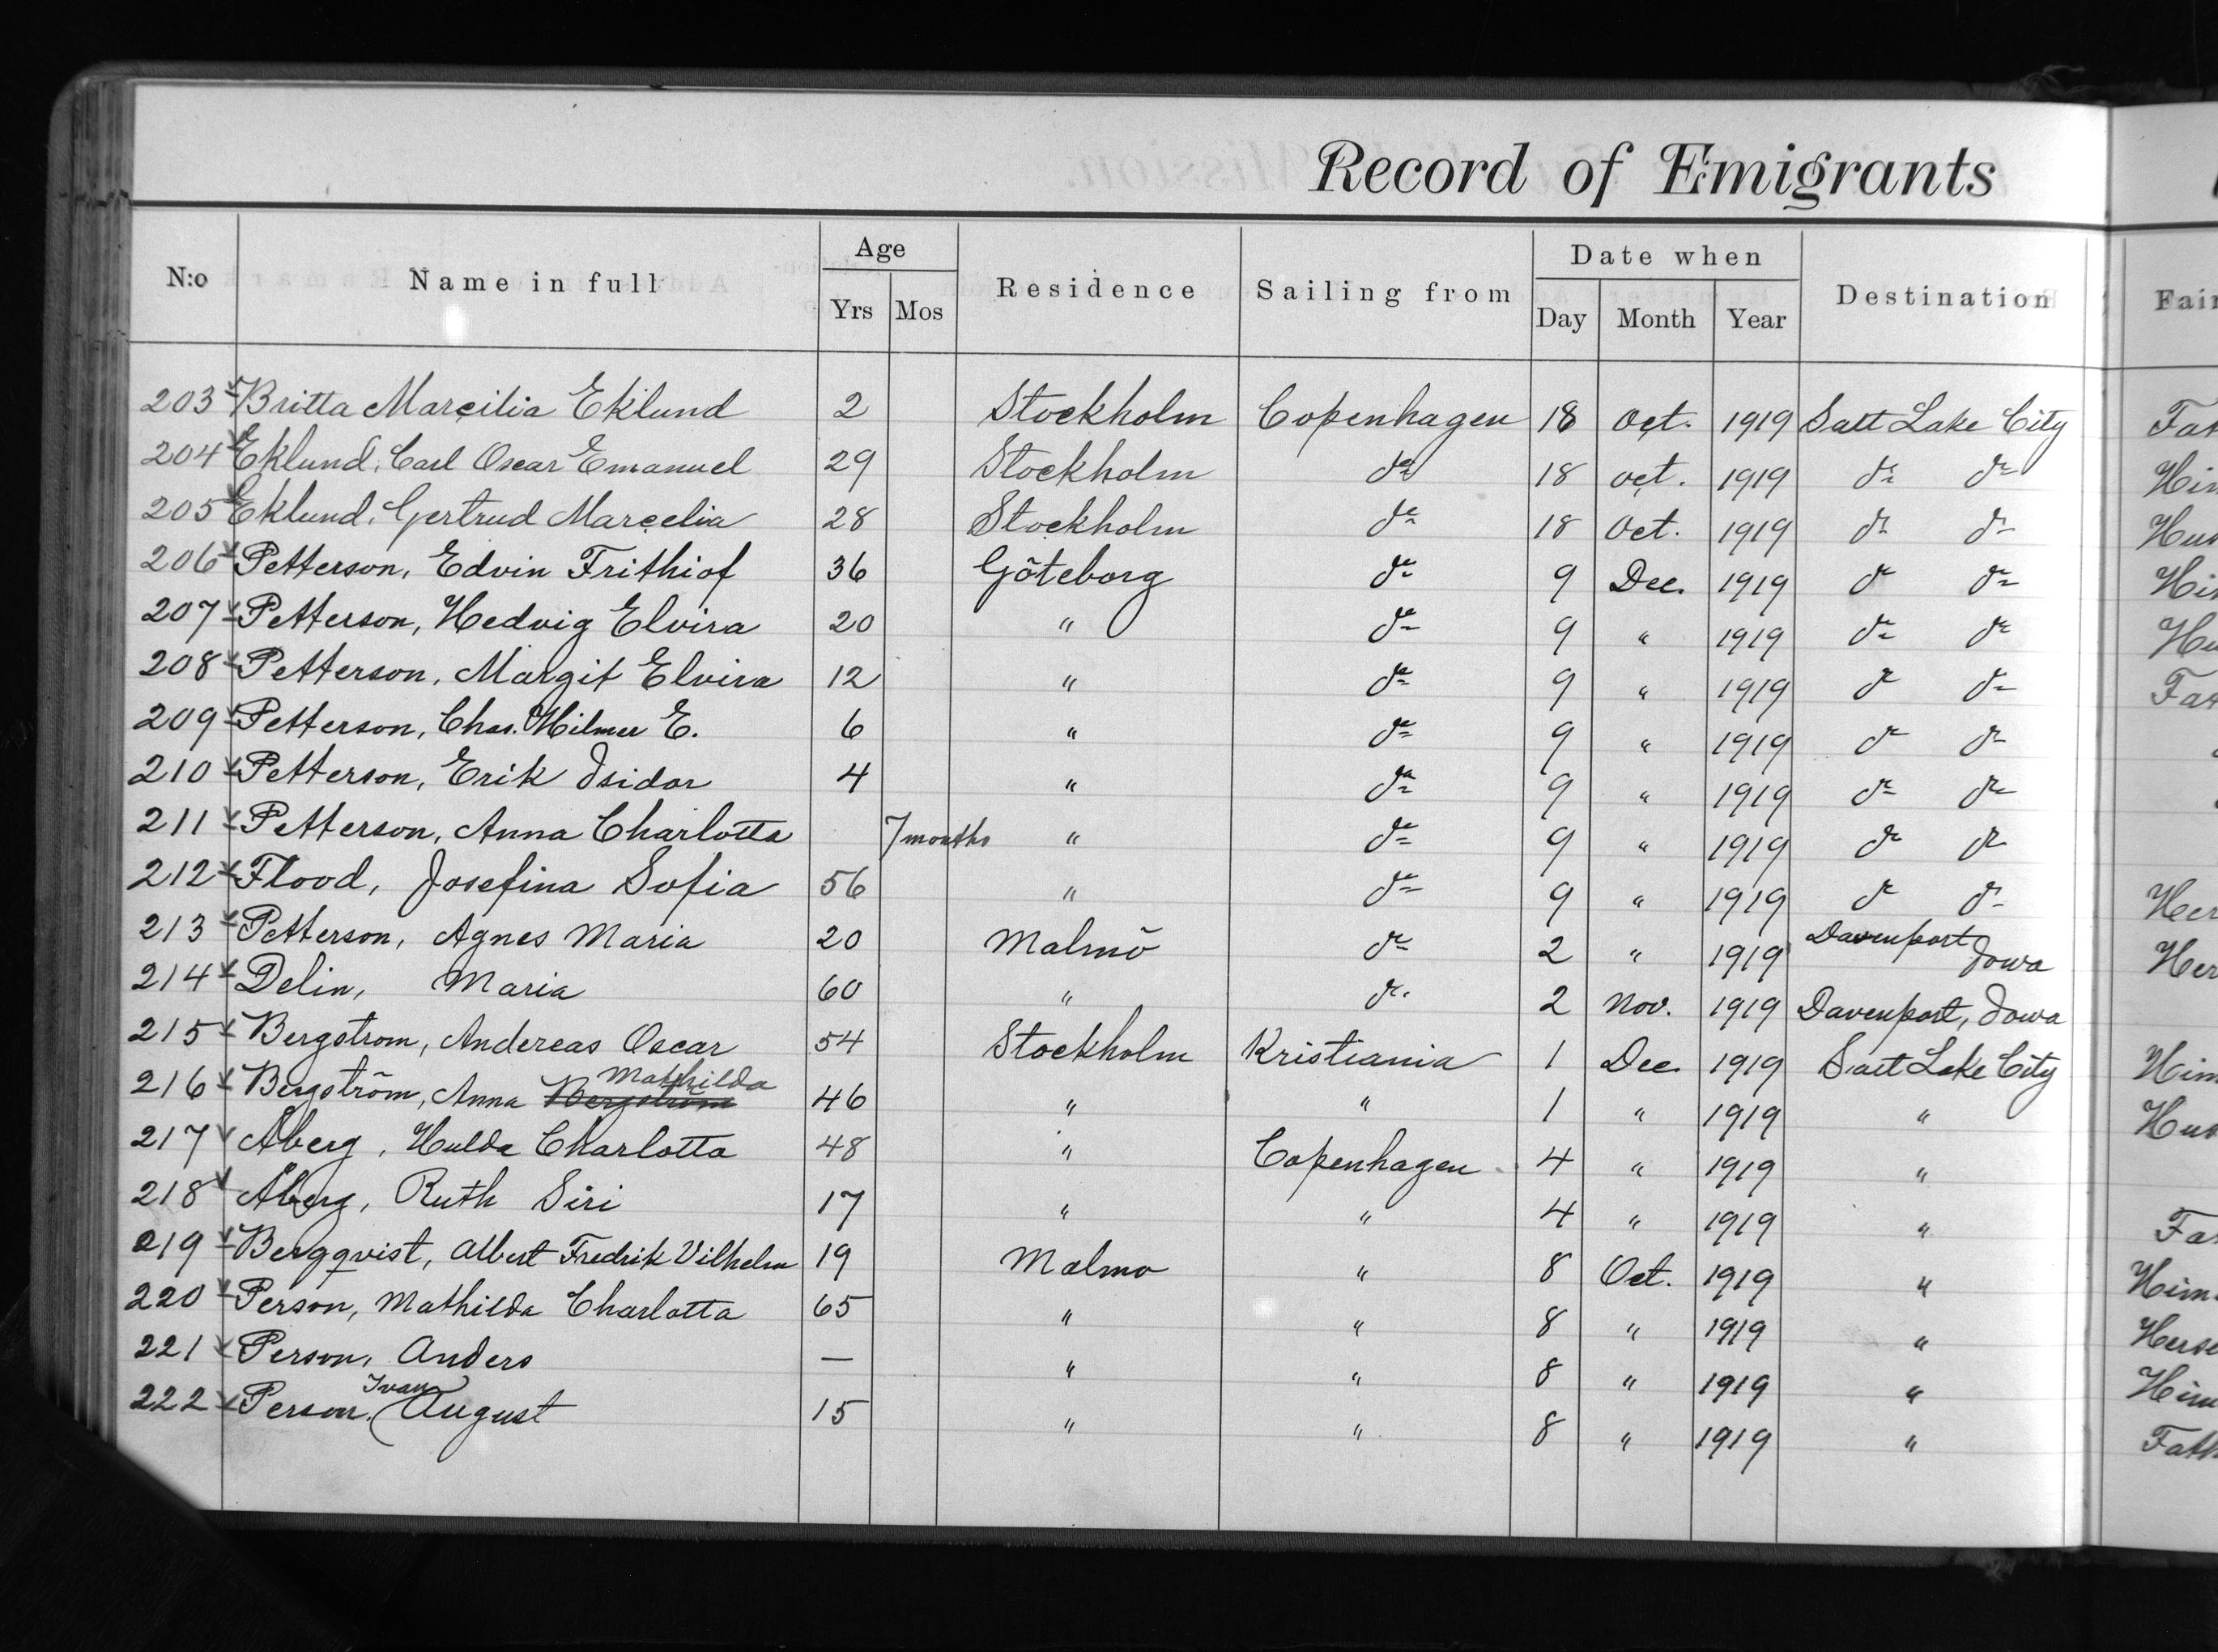 Record of Emigrants
N:o Name in full Age Yrs Mos Residence Sailing from Date when Day Month Year Destination
203 Britta Marcilia Eklund 2 Stockholm Copenhagen 18 Oct. 1919 Salt Lake City
204 Eklund, Carl Oscar Emanuel 29 Stockholm do 18 oct. 1919 do do
205 Eklund, Gertrud Marcelia 28 Stockholm do 18 Oct. 1919 do do
206 Petterson, Edvin Frithiof 36 Göteborg do 9 Dec. 1919 do do
207 Petterson, Hedvig Elvira 20 " do 9 " 1919 do do
208 Petterson, Margit Elvira 12 " do 9 " 1919 do do
209 Petterson, Chas. Hilmer E. 6 " do 9 " 1919 do do
210 Petterson, Erik Isidor 4 " do 9 " 1919 do do
211 Petterson, Anna Charlotta 7 months " do 9 " 1919 do do
212 Flood, Josefina Sofia 56 " do 9 " 1919 do do
213 Petterson, Agnes Maria 20 Malmö do 2 " 1919 Davenport Iowa
214 Delin, Maria 60 " do 2 Nov. 1919 Davenport, Iowa
215 Bergstrom, Andereas Oscar 54 Stockholm Kristiania 1 Dec. 1919 Salt Lake City
216 Bergström, Anna Bergström Mathilda 46 " " 1 " 1919 "
217 Åberg, Hulda Charlotta 48 " Copenhagen 4 " 1919 "
218 Åberg, Ruth Siri 17 " " 4 " 1919 "
219 Bergqvist, Albert Fredrik Vilhelm 19 Malmo " 8 Oct. 1919 "
220 Person, Mathilda Charlotta 65 " " 8 " 1919 "
221 Person, Anders — " " 8 " 1919 "
222 Person, Ivan August 15 " " 8 " 1919 "